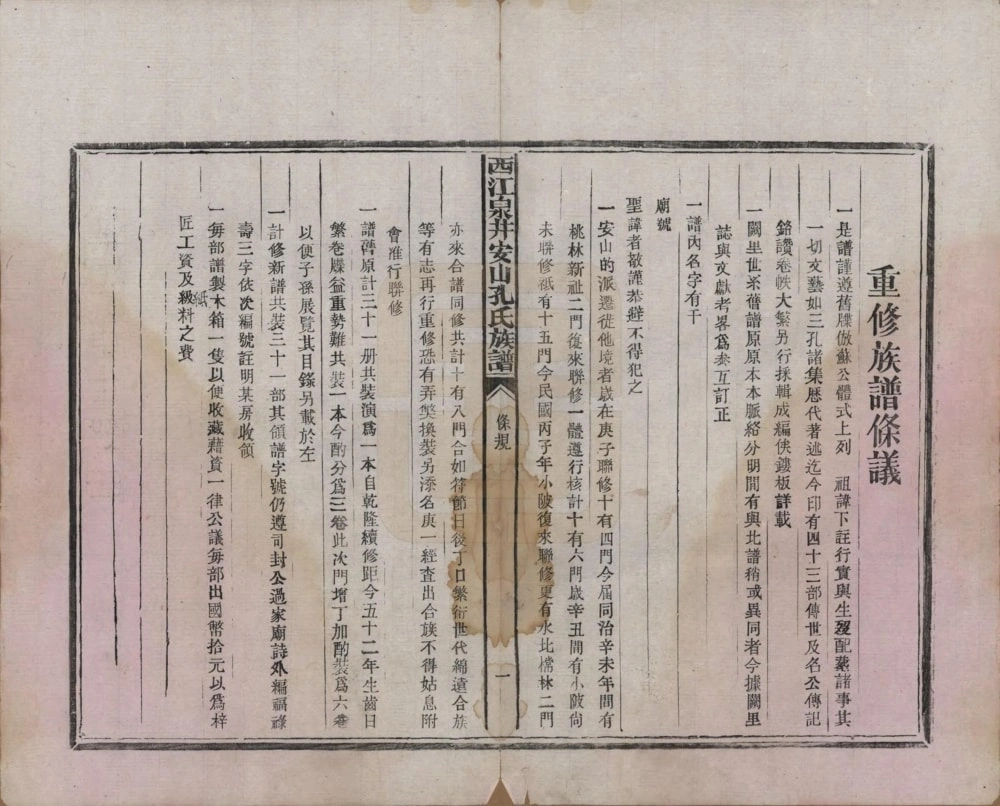 重修族譜條議
一是譜謹遵舊牒倣蘇公體式上列 祖諱下註行實與生娶配葬諸事其
一切文藝如三孔諸集歷代著述迄今印有四十三部傳世及名公傳記
銘讚卷帙大繁另行採輯成編俟鏤板詳載
一闕里世系舊譜原原本本脈絡分明間有與此譜稍或異同者今據闕里
誌與文獻考畧為叅互訂正
一譜內名字有干
廟號
聖諱者敬謹恭避不得犯之
一安山的派遷徙他境者歲在庚子聯修十有四門今屆同治辛未年間有
桃林新祉二門復來聯修一體遵行核計十有六門歲辛丑間有小陂尙
未聯修祗有十五門今民國丙子年小陂復來聯修更有水比檔林二門
西江泉井安山孔氏族譜 條規 一
亦來合譜同修共計十有八門合如符節日後丁口繁衍世代綿遠合族
等有志再行重修恐有弄獘換裝另添名庚一經查出合族不得姑息附
會准行聯修
一譜舊原計三十一册共裝演爲一本自乾隆續修距今五十二年生齒日
繁卷牒益重勢難共裝一本今酌分爲三卷此次門增丁加酌裝爲六卷
以便子孫展覽其目錄另載於左
一計修新譜共裝三十一部其領譜字號仍遵司封公過家廟詩外編福祿
壽三字依次編號註明某房收領
一每部譜製木箱一隻以便收藏藉資一律公議每部出國幣拾元以爲梓
匠工資及紙料之費